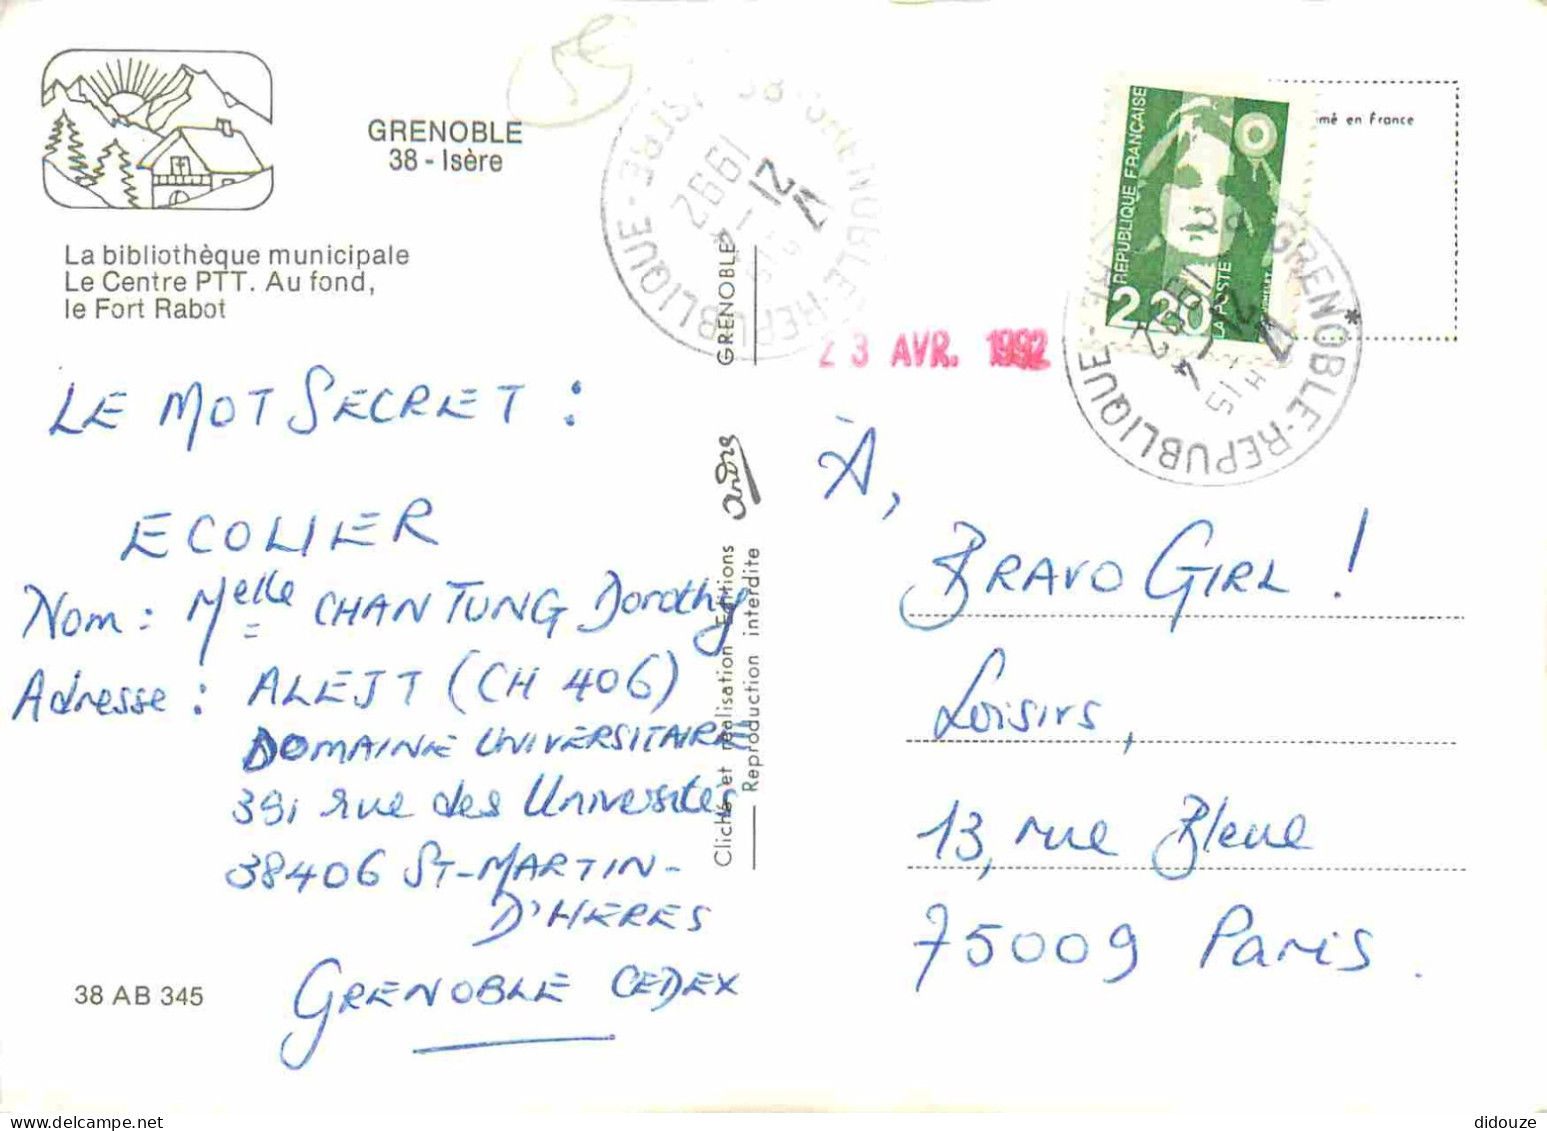 GRENOBLE
38 - Isère
La bibliothèque municipale
Le Centre PTT. Au fond,
le Fort Rabot
LE MOT SECRET :
ECOLIER
Nom : Melle CHAN TUNG Dorothy
Adresse : ALEJT (CH 406)
DOMAINE UNIVERSITAIRE
391 rue des Universités
38406 ST-MARTIN-
D'HERES
GRENOBLE CEDEX
38 AB 345
GRENOBLE
andre
Cliché et réalisation Editions
Reproduction interdite
38 GRENOBLE-REPUBLIQUE-ISÈRE
21 -4
1992
23 AVR. 1992
RÉPUBLIQUE FRANÇAISE
2,20
LA POSTE
mé en France
GRENOBLE-REPUBLIQUE
15 H
21 -4
1992
À,
BRAVO GIRL !
Loisirs,
13, rue Bleue
75009 Paris.
didouze